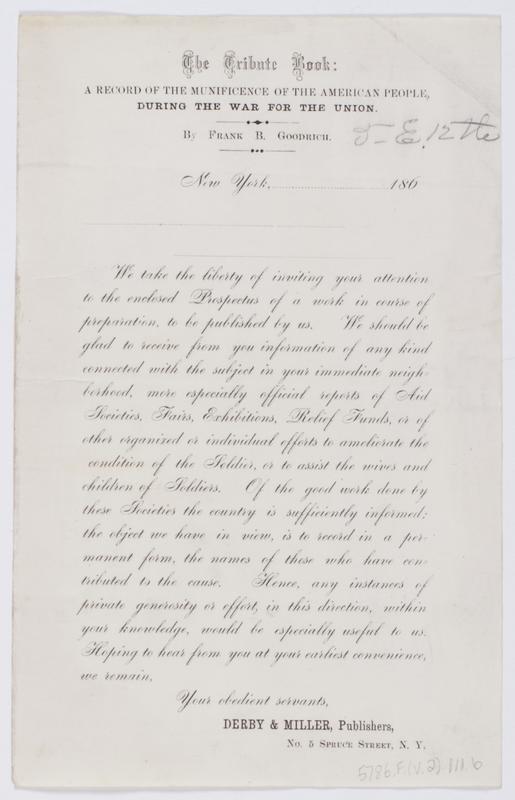 The Tribute Book:
A RECORD OF THE MUNIFICENCE OF THE AMERICAN PEOPLE,
DURING THE WAR FOR THE UNION.
By FRANK B. GOODRICH.
5-E. 12th
New York, 186
We take the liberty of inviting your attention
to the enclosed Prospectus of a work in course of
preparation, to be published by us. We should be
glad to receive from you information of any kind
connected with the subject in your immediate neigh-
borhood, more especially official reports of Aid
Societies, Fairs, Exhibitions, Relief Funds, or of
other organized or individual efforts to ameliorate the
condition of the Soldier, or to assist the wives and
children of Soldiers. Of the good work done by
these Societies the country is sufficiently informed;
the object we have in view, is to record in a per-
manent form, the names of those who have con-
tributed to the cause. Hence, any instances of
private generosity or effort, in this direction, within
your knowledge, would be especially useful to us.
Hoping to hear from you at your earliest convenience,
we remain,
Your obedient servants,
DERBY & MILLER, Publishers,
No. 5 SPRUCE STREET, N. Y.
5786.F.(v.2) 111.b